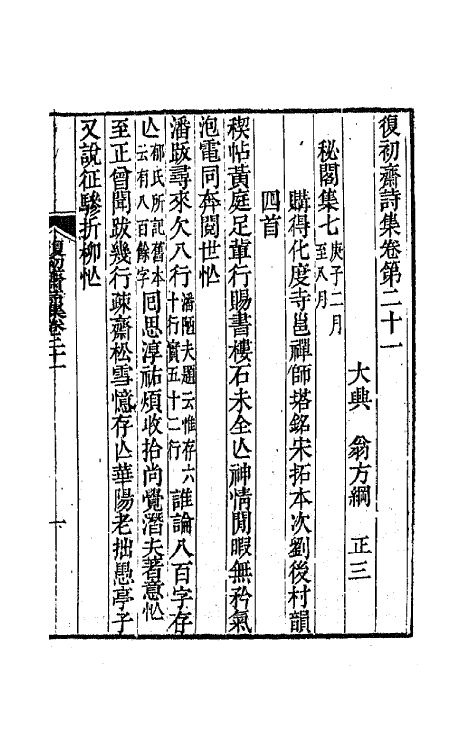 復初齋詩集卷第二十一
大興 翁方綱 正三
秘閣集七庚子二月至八月
購得化度寺邕禪師塔銘宋拓本次劉後村韻
四首
禊帖黃庭足輩行賜書樓石未全亾神情閒暇無矜氣
泡電同奔閱世忙
潘跋尋來欠八行潘陋夫題云惟存六十行實五十二行誰論八百字存
亾郁氏所記舊本云有八百餘字囘思淳祐煩收拾尚覺潛夫著意忙
至正曾聞跋幾行疎齋松雪憶存亾華陽老拙愚亭子
又說征驂折柳忙
復初齋詩集卷二十一
一